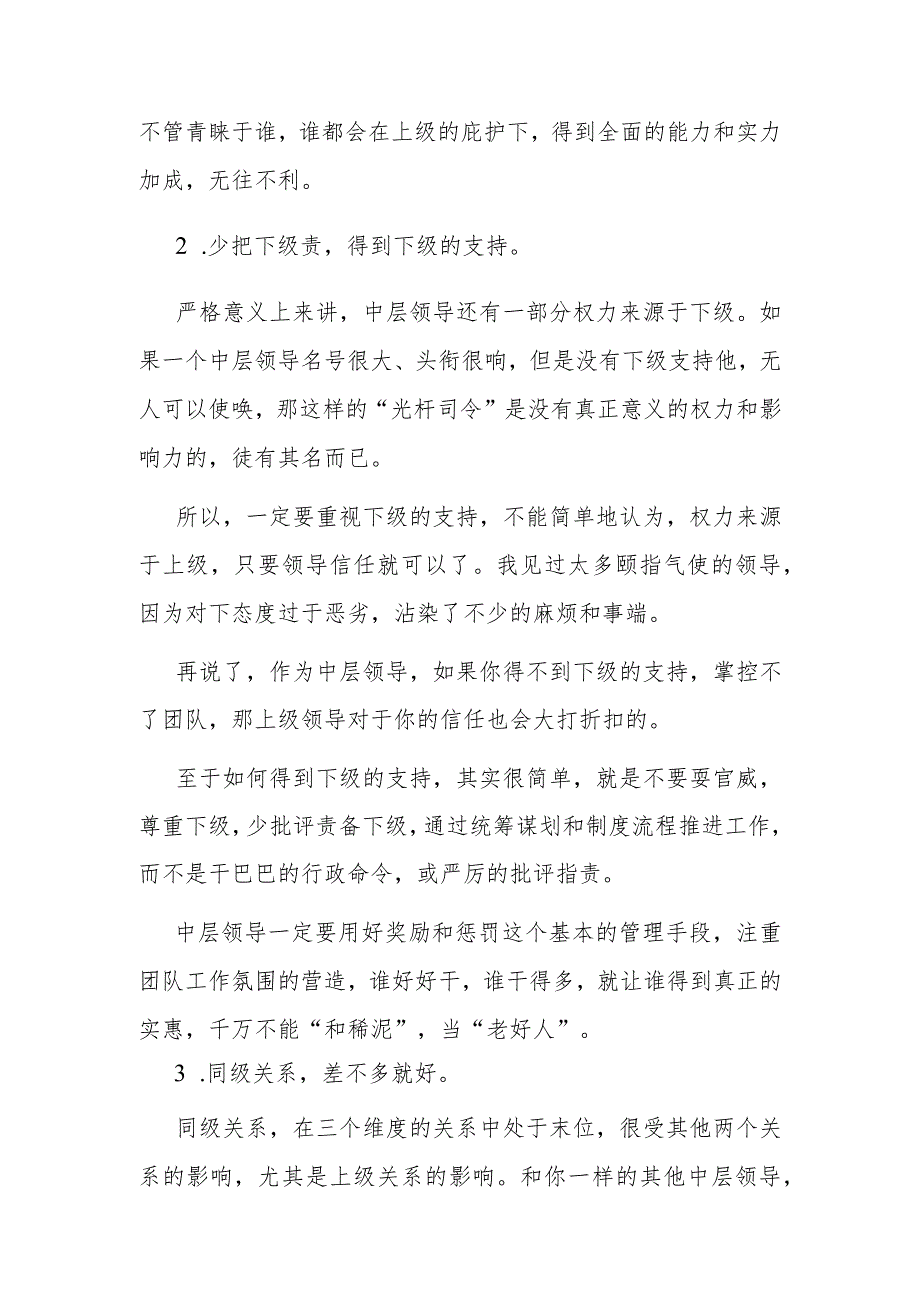 不管青睐于谁，谁都会在上级的庇护下，得到全面的能力和实力
加成，无往不利。
2 .少把下级责，得到下级的支持。
严格意义上来讲，中层领导还有一部分权力来源于下级。如
果一个中层领导名号很大、头衔很响，但是没有下级支持他，无
人可以使唤，那这样的“光杆司令”是没有真正意义的权力和影
响力的，徒有其名而已。
所以，一定要重视下级的支持，不能简单地认为，权力来源
于上级，只要领导信任就可以了。我见过太多颐指气使的领导，
因为对下态度过于恶劣，沾染了不少的麻烦和事端。
再说了，作为中层领导，如果你得不到下级的支持，掌控不
了团队，那上级领导对于你的信任也会大打折扣的。
至于如何得到下级的支持，其实很简单，就是不要耍官威，
尊重下级，少批评责备下级，通过统筹谋划和制度流程推进工作，
而不是干巴巴的行政命令，或严厉的批评指责。
中层领导一定要用好奖励和惩罚这个基本的管理手段，注重
团队工作氛围的营造，谁好好干，谁干得多，就让谁得到真正的
实惠，千万不能“和稀泥”，当“老好人”。
3 .同级关系，差不多就好。
同级关系，在三个维度的关系中处于末位，很受其他两个关
系的影响，尤其是上级关系的影响。和你一样的其他中层领导，